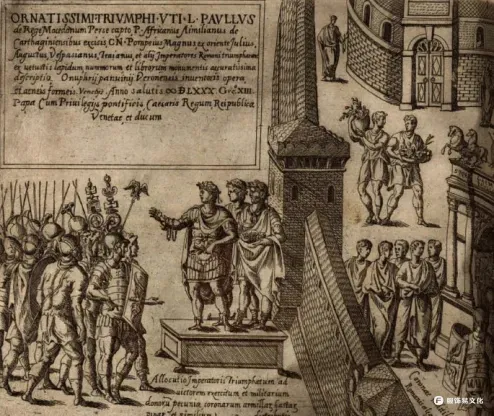 ORNATISSIMI·TRIVMPHI·VTI·L·PAVLLVS
de Rege Macedonum Perse capto P. Africanus Aimilianus de
Carthaginiensibus excisis CN·Pompeius Magnus ex oriente Julius,
Augustus Vespasianus, Traianus, et alij Imperatores Romani triumpharunt
ex vetustis lapidum nummorum et librorum monumentis accuratissima
descriptio, Onuphrij panvinij Veronensis inventoris opera,
et aeneis formeis, Venetijs, Anno salutis ∞ D LXXX Gre XIII
Papa Cum Privilegijs pontificis Caesaris Regum Reipublicae
Venetae, et ducum
Allocutio Imperatoris Triumphatum ad
victorem exercitum et militarium
donorū pecunia coronarum armillar hastar
Coronarum
服饰吴文化